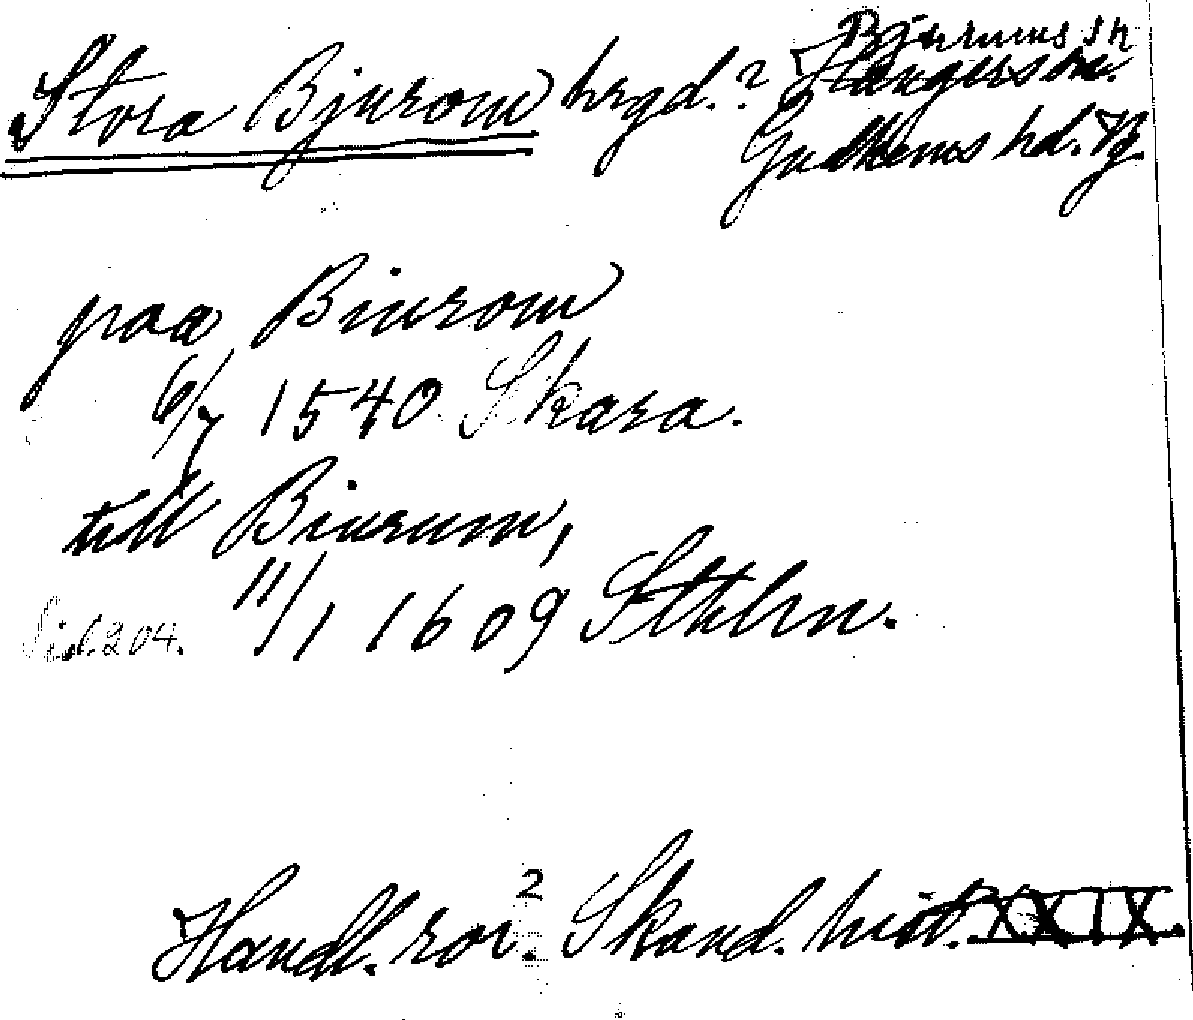 Stora Bjurom hrgd.? Bjurums sn
Gudhems hd. Vg.
paa Biurom
6/7 1540 Skara.
till Biurum,
11/1 1609 Sthlm.
Sid. 204.
Handl. rör. 2 Skand. hist. XXIX.